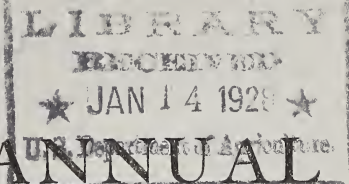 LIBRARY
RECEIVED
★ JAN 14 1929 ★
U.S. Department of Agriculture
ANNUAL